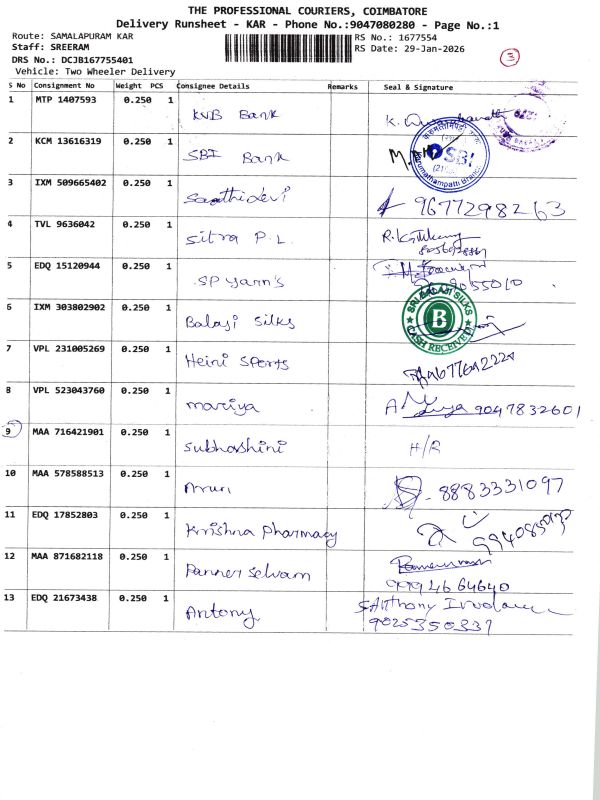 THE PROFESSIONAL COURIERS, COIMBATORE
Delivery Runsheet - KAR - Phone No.:9047080280 - Page No.:1
Route: SAMALAPURAM KAR RS No.: 1677554
Staff: SREERAM RS Date: 29-Jan-2026
DRS No.: DCJB167755401 3
Vehicle: Two Wheeler Delivery
S No Consignment No Weight PCS Consignee Details Remarks Seal & Signature
1 MTP 1407593 0.250 1 KVB Bank K.
2 KCM 13616319 0.250 1 SBI Bank SBI
3 IXM 509665402 0.250 1 Saathidevi 9677298263
4 TVL 9636042 0.250 1 Sitra P.L.
5 EDQ 15120944 0.250 1 SP Yarn's
6 IXM 303802902 0.250 1 Balaji Silks SRI BALAJI SILKS B CASH RECEIVED
7 VPL 231005269 0.250 1 Heini Sports
8 VPL 523043760 0.250 1 mariya 9047832601
9 MAA 716421901 0.250 1 Subhashini H/R
10 MAA 578588513 0.250 1 Arun - 8883331097
11 EDQ 17852803 0.250 1 Krishna Pharmacy
12 MAA 871682118 0.250 1 Panner Selvam
9994664640
13 EDQ 21673438 0.250 1 Antony S.Anthony
9025350337